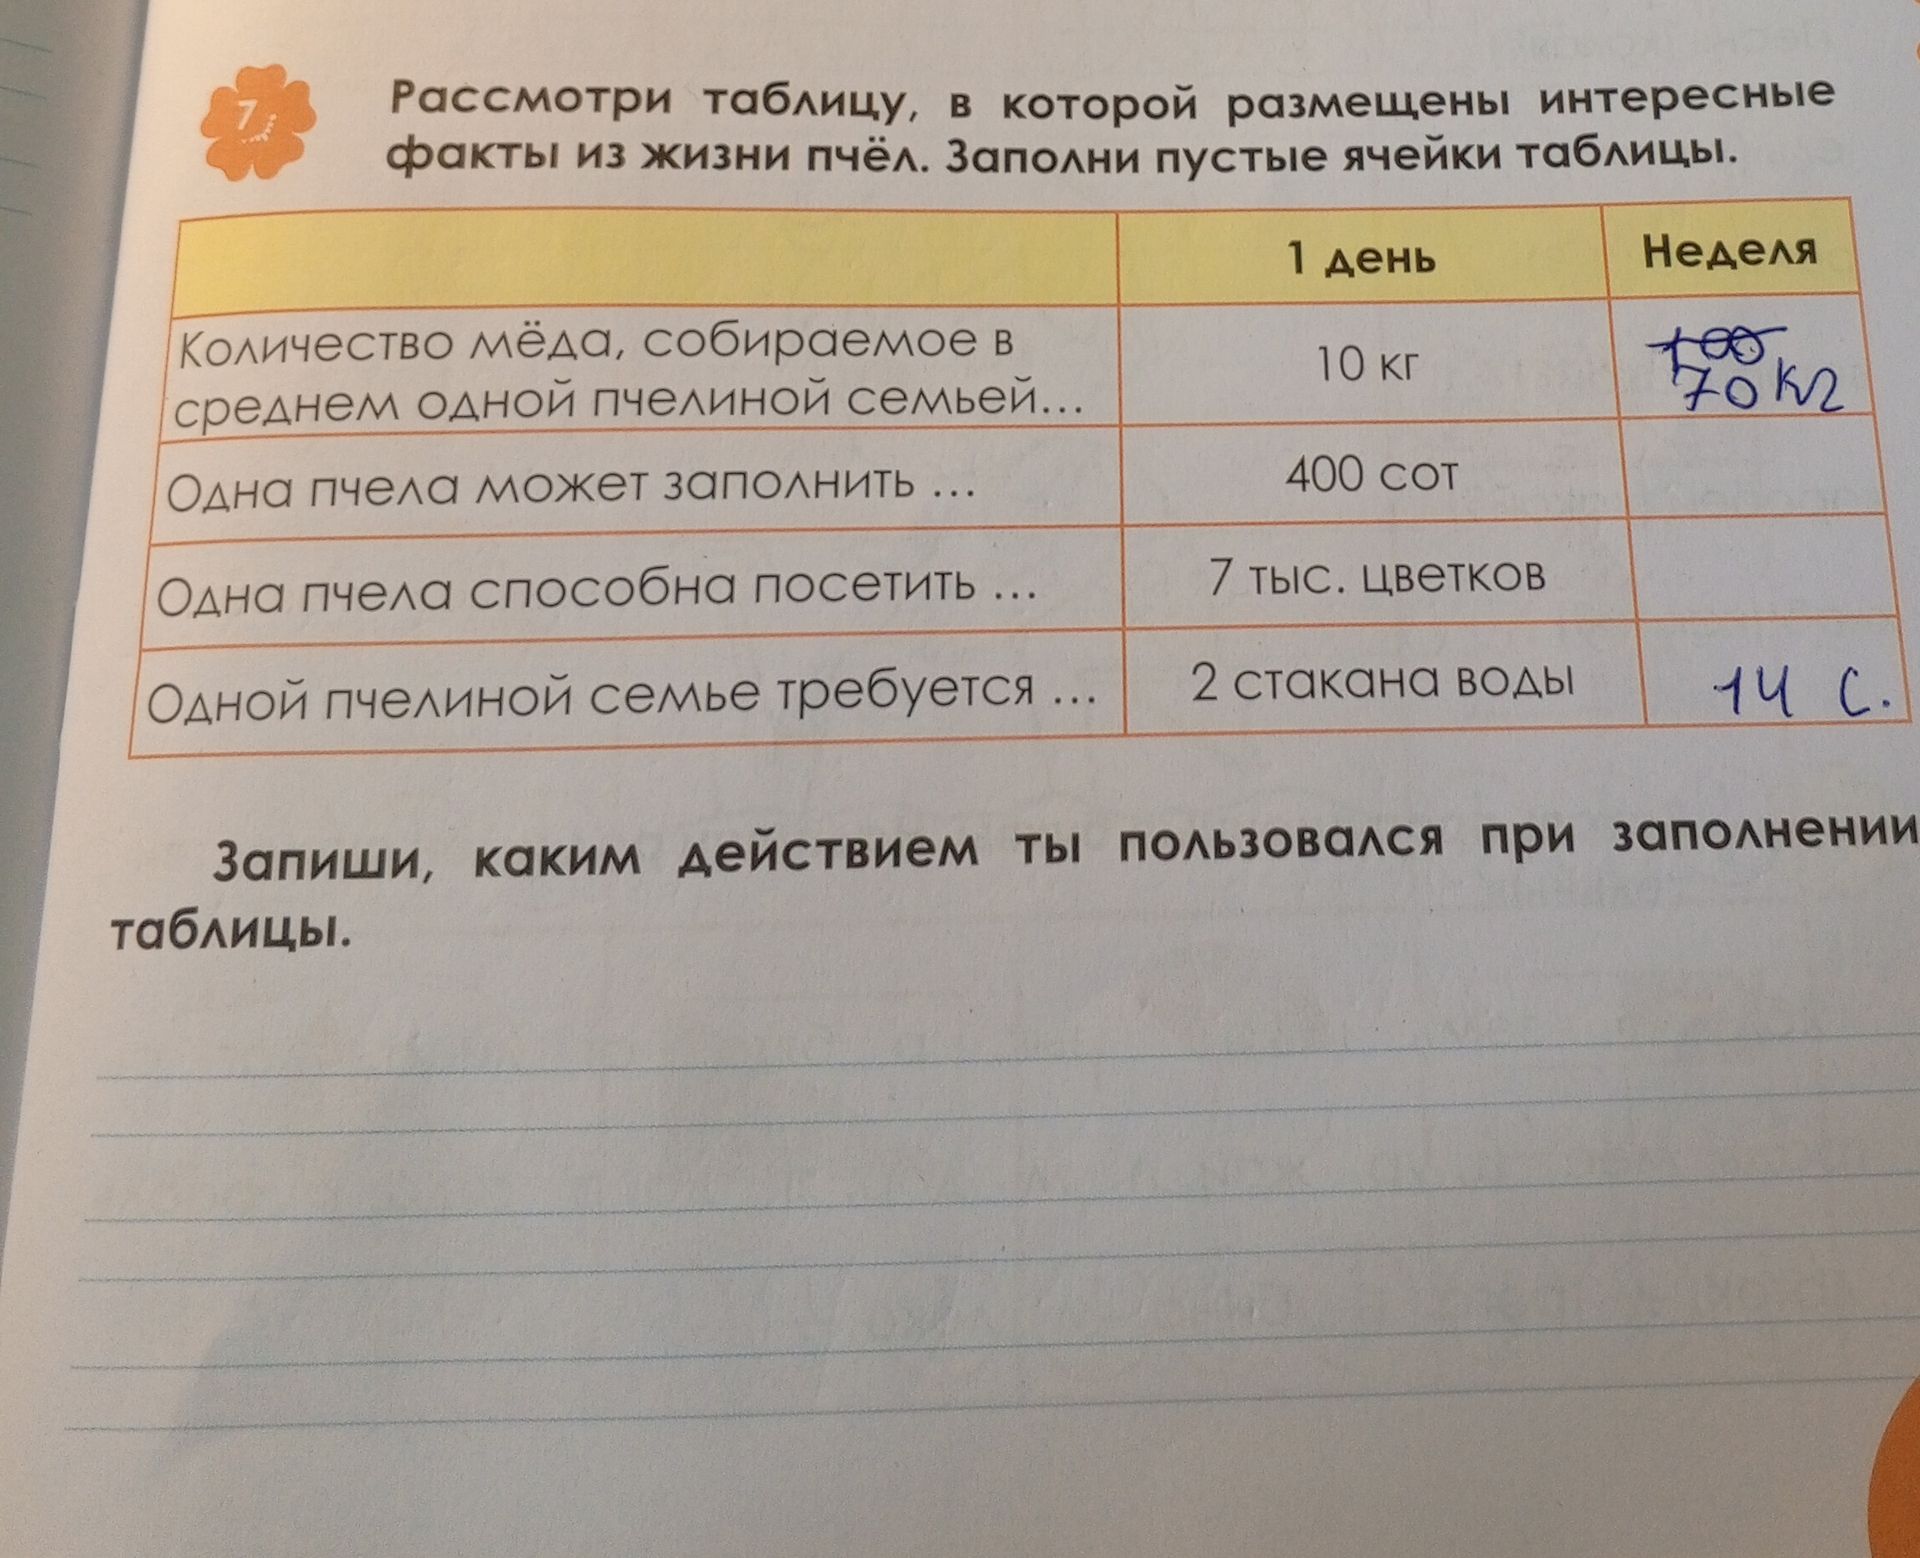 7
Рассмотри таблицу, в которой размещены интересные
факты из жизни пчёл. Заполни пустые ячейки таблицы.
1 день
Неделя
Количество мёда, собираемое в
среднем одной пчелиной семьей...
10 кг
100
70 кг
Одна пчела может заполнить ...
400 сот
Одна пчела способна посетить ...
7 тыс. цветков
Одной пчелиной семье требуется ...
2 стакана воды
14 с.
Запиши, каким действием ты пользовался при заполнении
таблицы.